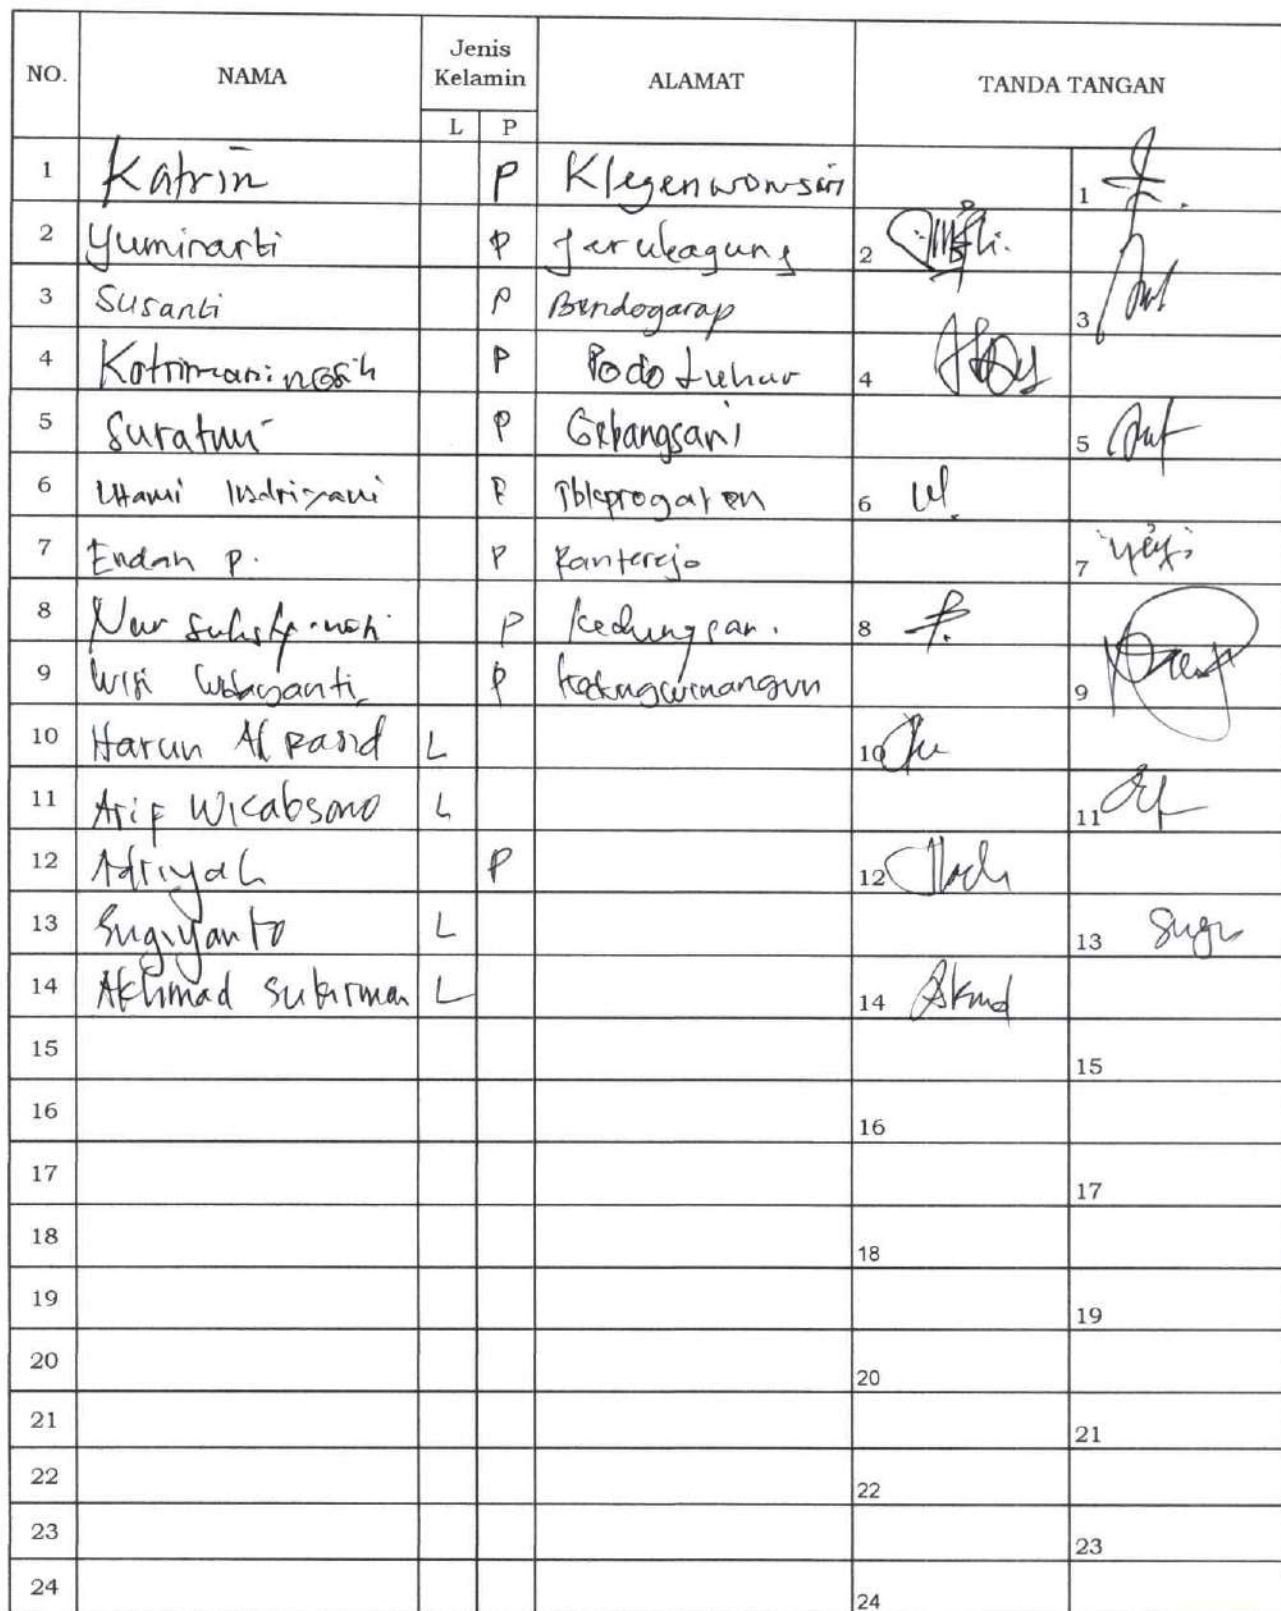 NO. NAMA Jenis Kelamin ALAMAT TANDA TANGAN
L P
1 Katrin P Klegenwonosri 1
2 Yuminarti P Jerukagung 2
3 Susanti P Bendogarap 3
4 Katrimaningsih P Podoluhur 4
5 Suratmi P Gebangsari 5
6 Utami Indriyani P 6
7 Endah P. P 7
8 Nur P Kedungsari 8
9 P Kedungwinangun 9
10 Harun Al Rasid L 10
11 Arif Wicabsono L 11
12 Adriyah P 12
13 Sugiyanto L 13 Sugi
14 Akhmad Sukirman L 14 Akmd
15 15
16 16
17 17
18 18
19 19
20 20
21 21
22 22
23 23
24 24